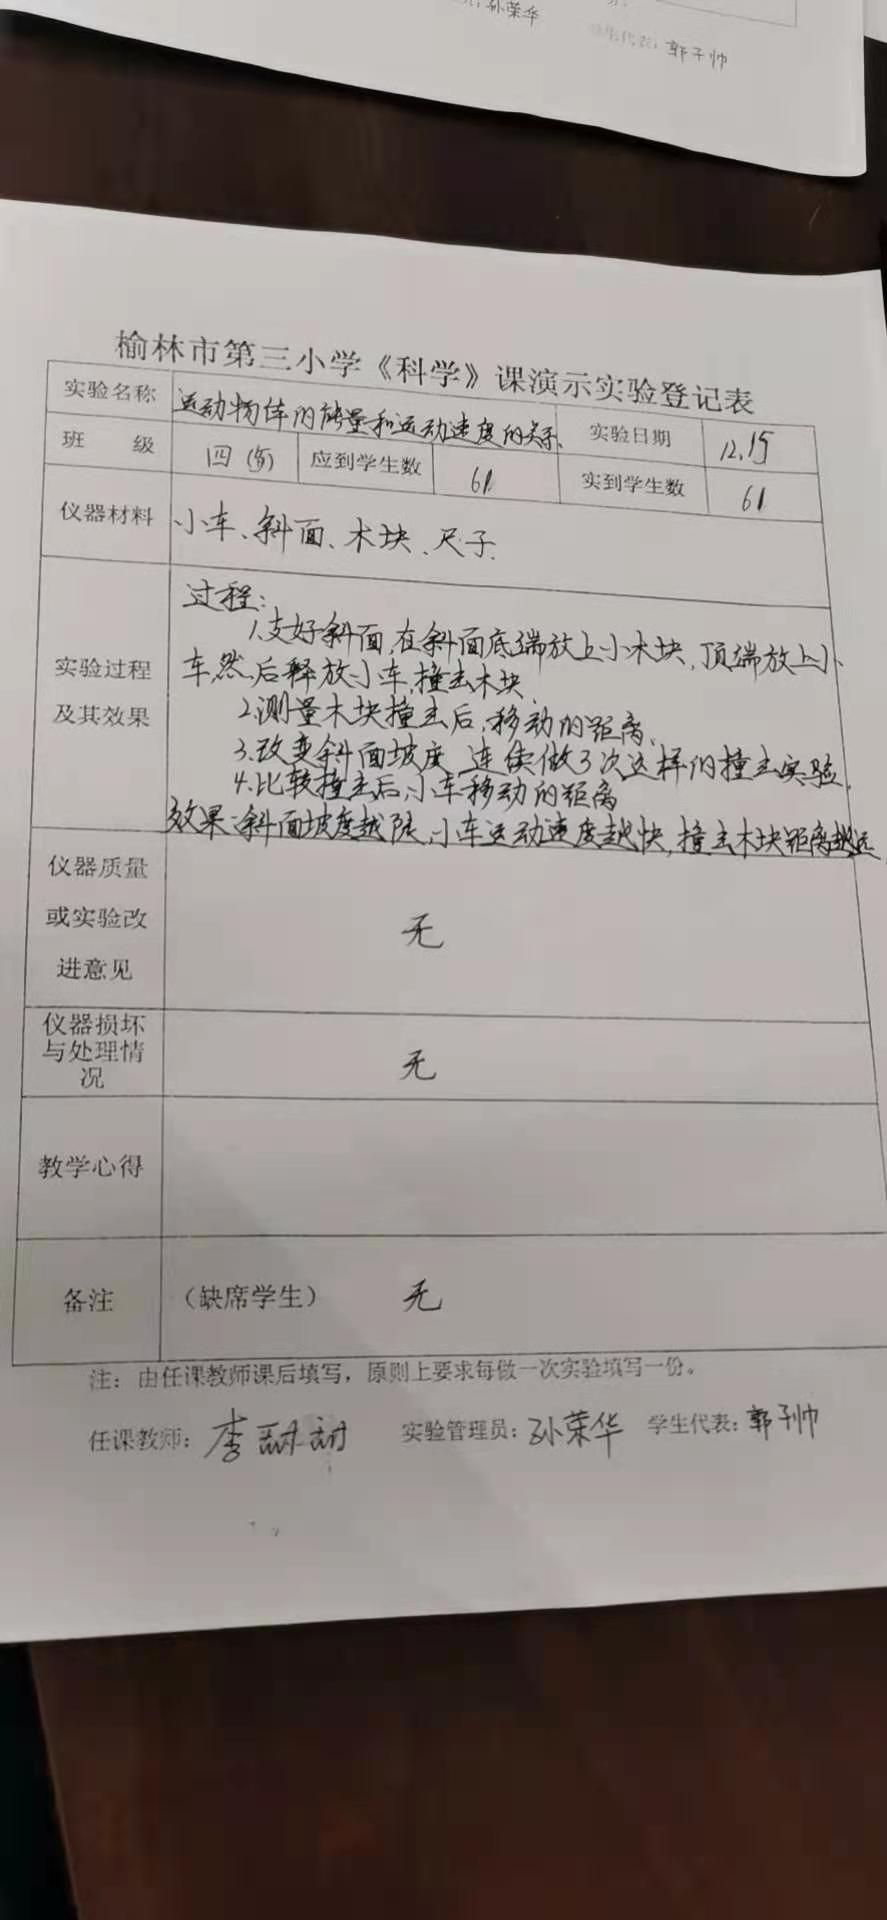 孙荣华
学生代表：郭子帅
榆林市第三小学《科学》课演示实验登记表
实验名称 运动物体的能量和运动速度的关系 实验日期 12.15
班 级 四（5） 应到学生数 61 实到学生数 61
仪器材料 小车、斜面、木块、尺子.
过程：
1.支好斜面,在斜面底端放上小木块,顶端放上小
实验过程 车,然后释放小车,撞击木块.
及其效果 2.测量木块撞击后,移动的距离.
3.改变斜面坡度,连续做3次这样的撞击实验.
4.比较撞击后,小车移动的距离
效果:斜面坡度越陡,小车运动速度越快,撞击木块距离越远
仪器质量
或实验改 无
进意见
仪器损坏
与处理情 无
况
教学心得
备注 （缺席学生） 无
注：由任课教师课后填写，原则上要求每做一次实验填写一份。
任课教师：李甜甜 实验管理员：孙荣华 学生代表：郭子帅